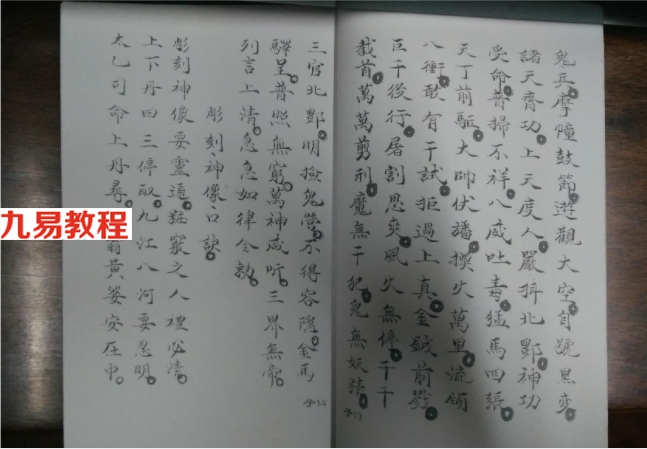 鬼兵摩幢鼓節遊觀太空自號黑变
諸天齊功上天度人嚴攝北酆神功
受命普掃不祥八威吐毒猛馬四張
天丁前驅大帥伏旛擲火萬里流鈴
八衝敢有干試拒遏上真金鉞前戮
巨千後行屠割鬼爽風火無停千千
截首萬萬剪刑魔無干犯鬼無妖孽
4-13
三官北酆明撿鬼營不得容隱金馬
驛呈普照無窮萬神咸听三界無
列言上清急急如律令勅
彫刻神像口訣
彫刻神像要靈通 嚴之人裡必清
上下丹田三停取九江八河要分明
太乙司命上丹尋 翁黃婆安在中
4-14
九易教程